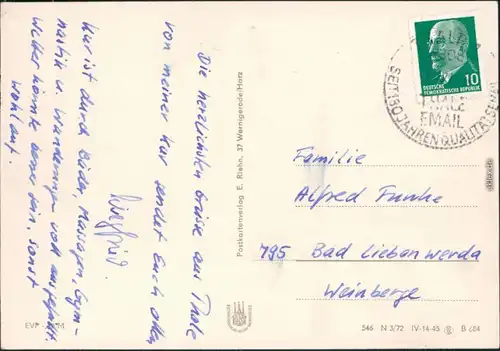 Die herzlichsten Grüße aus Thale
von meiner Kur sendet Euch allen
Siegfried.
Kur ist durch Bäder, Massagen, Gym-
nastik u. Wanderungen voll ausgefüllt.
Wetter könnte besser sein, sonst
wohlauf.
Postkartenverlag E. Riehn, 37 Wernigerode/Harz
10
DEUTSCHE
DEMOKRATISCHE REPUBLIK
THALE
EMAIL
SEIT 130 JAHREN QUALITÄTSEMAIL
Familie
Alfred Funke
795 Bad Liebenwerda
Weinberge
EVP
546 N 3/72 IV-14-45 B 684